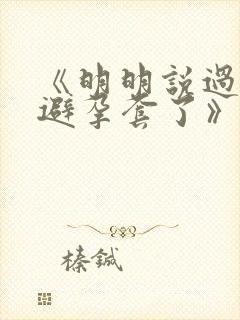 《明明說過
避孕套了》
榛鋮